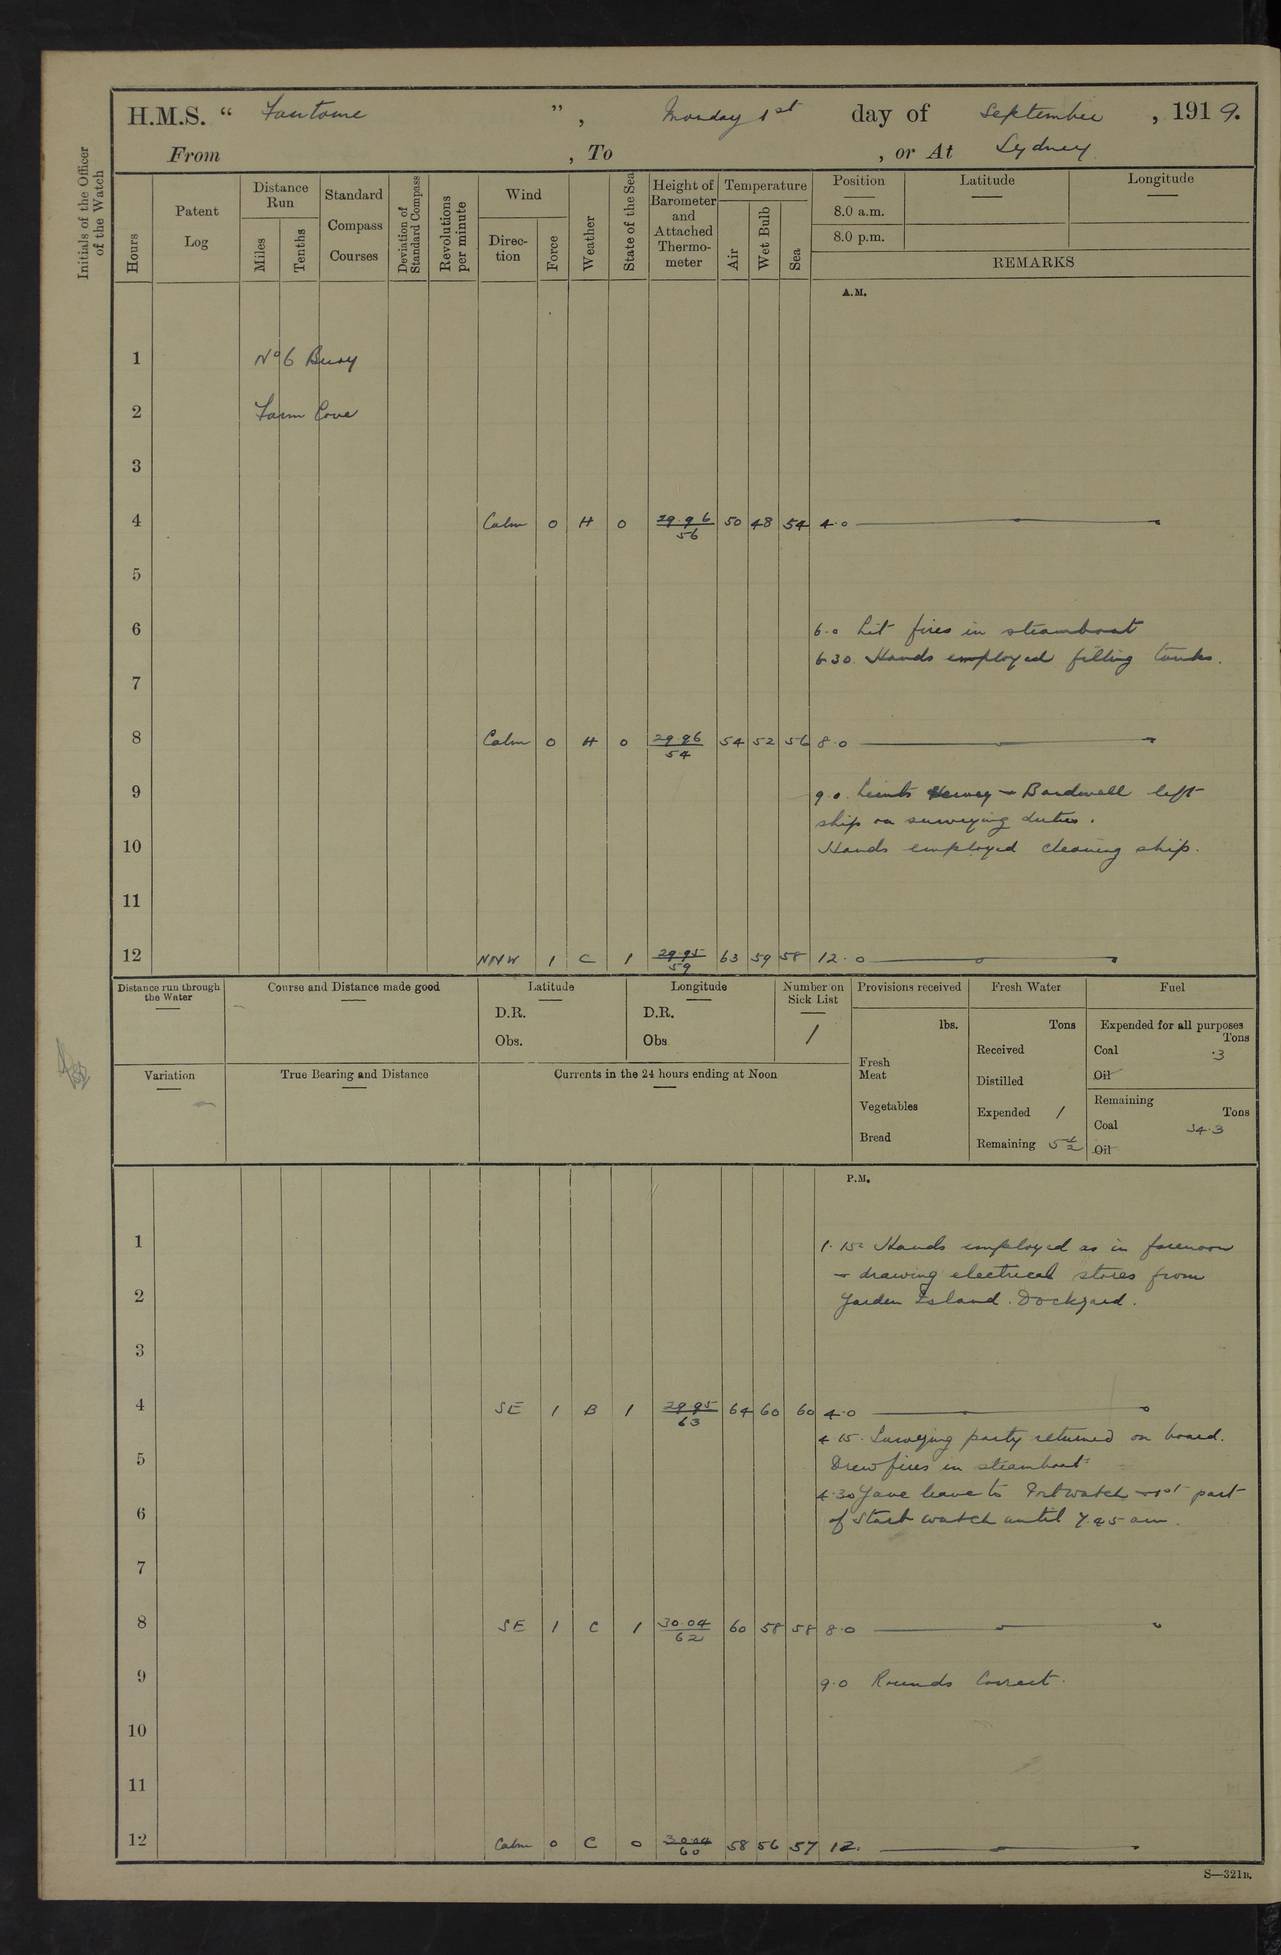 H.M.S. “ Fantome ”, Monday 1st day of September, 1919.
From , To , or At Sydney
Initials of the Officer of the Watch
Hours
Patent Log
Distance Run
Miles
Tenths
Standard Compass Courses
Deviation of Standard Compass
Revolutions per minute
Wind
Direc-tion
Force
Weather
State of the Sea
Height of Barometer and Attached Thermo-meter
Temperature
Air
Wet Bulb
Sea
Position
Latitude
Longitude
8.0 a.m.
8.0 p.m.
REMARKS
A.M.
1 No 6 Buoy
2 Farm Cove
3
4 Calm 0 H 0 29.96 56 50 48 54 4.0
5
6 6.0 Lit fires in steamboat
6.30. Hands employed filling tanks.
7
8 Calm 0 H 0 29.96 54 54 52 56 8.0
9 9.0. Lieuts Hervey + Bardwell left
ship on surveying duties.
10 Hands employed cleaning ship.
11
12 NNW 1 C 1 29.95 59 63 59 58 12.0
Distance run through the Water
Course and Distance made good
Latitude
D.R.
Obs.
Longitude
D.R.
Obs
Number on Sick List
1
Provisions received
lbs.
Fresh Meat
Vegetables
Bread
Fresh Water
Tons
Received
Distilled
Expended 1
Remaining
Fuel
Expended for all purposes
Tons
Coal .3
Oil
Remaining
Tons
Coal 34.3
Oil
Variation
True Bearing and Distance
Currents in the 24 hours ending at Noon
P.M.
1 1.15 Hands employed as in forenoon
+ drawing electrical stores from
2 Garden Island. Dockyard.
3
4 SE 1 B 1 29.95 63 64 60 60 4.0
4.15. Surveying party returned on board.
5 Drew fires in steamboat
4.30 Gave leave to Port watch + 1st part
6 of Starb watch until 7.45 am.
7
8 SE 1 C 1 30.04 62 60 58 58 8.0
9 9.0 Rounds Correct.
10
11
12 Calm 0 C 0 30.04 60 58 56 57 12.
S—321B.